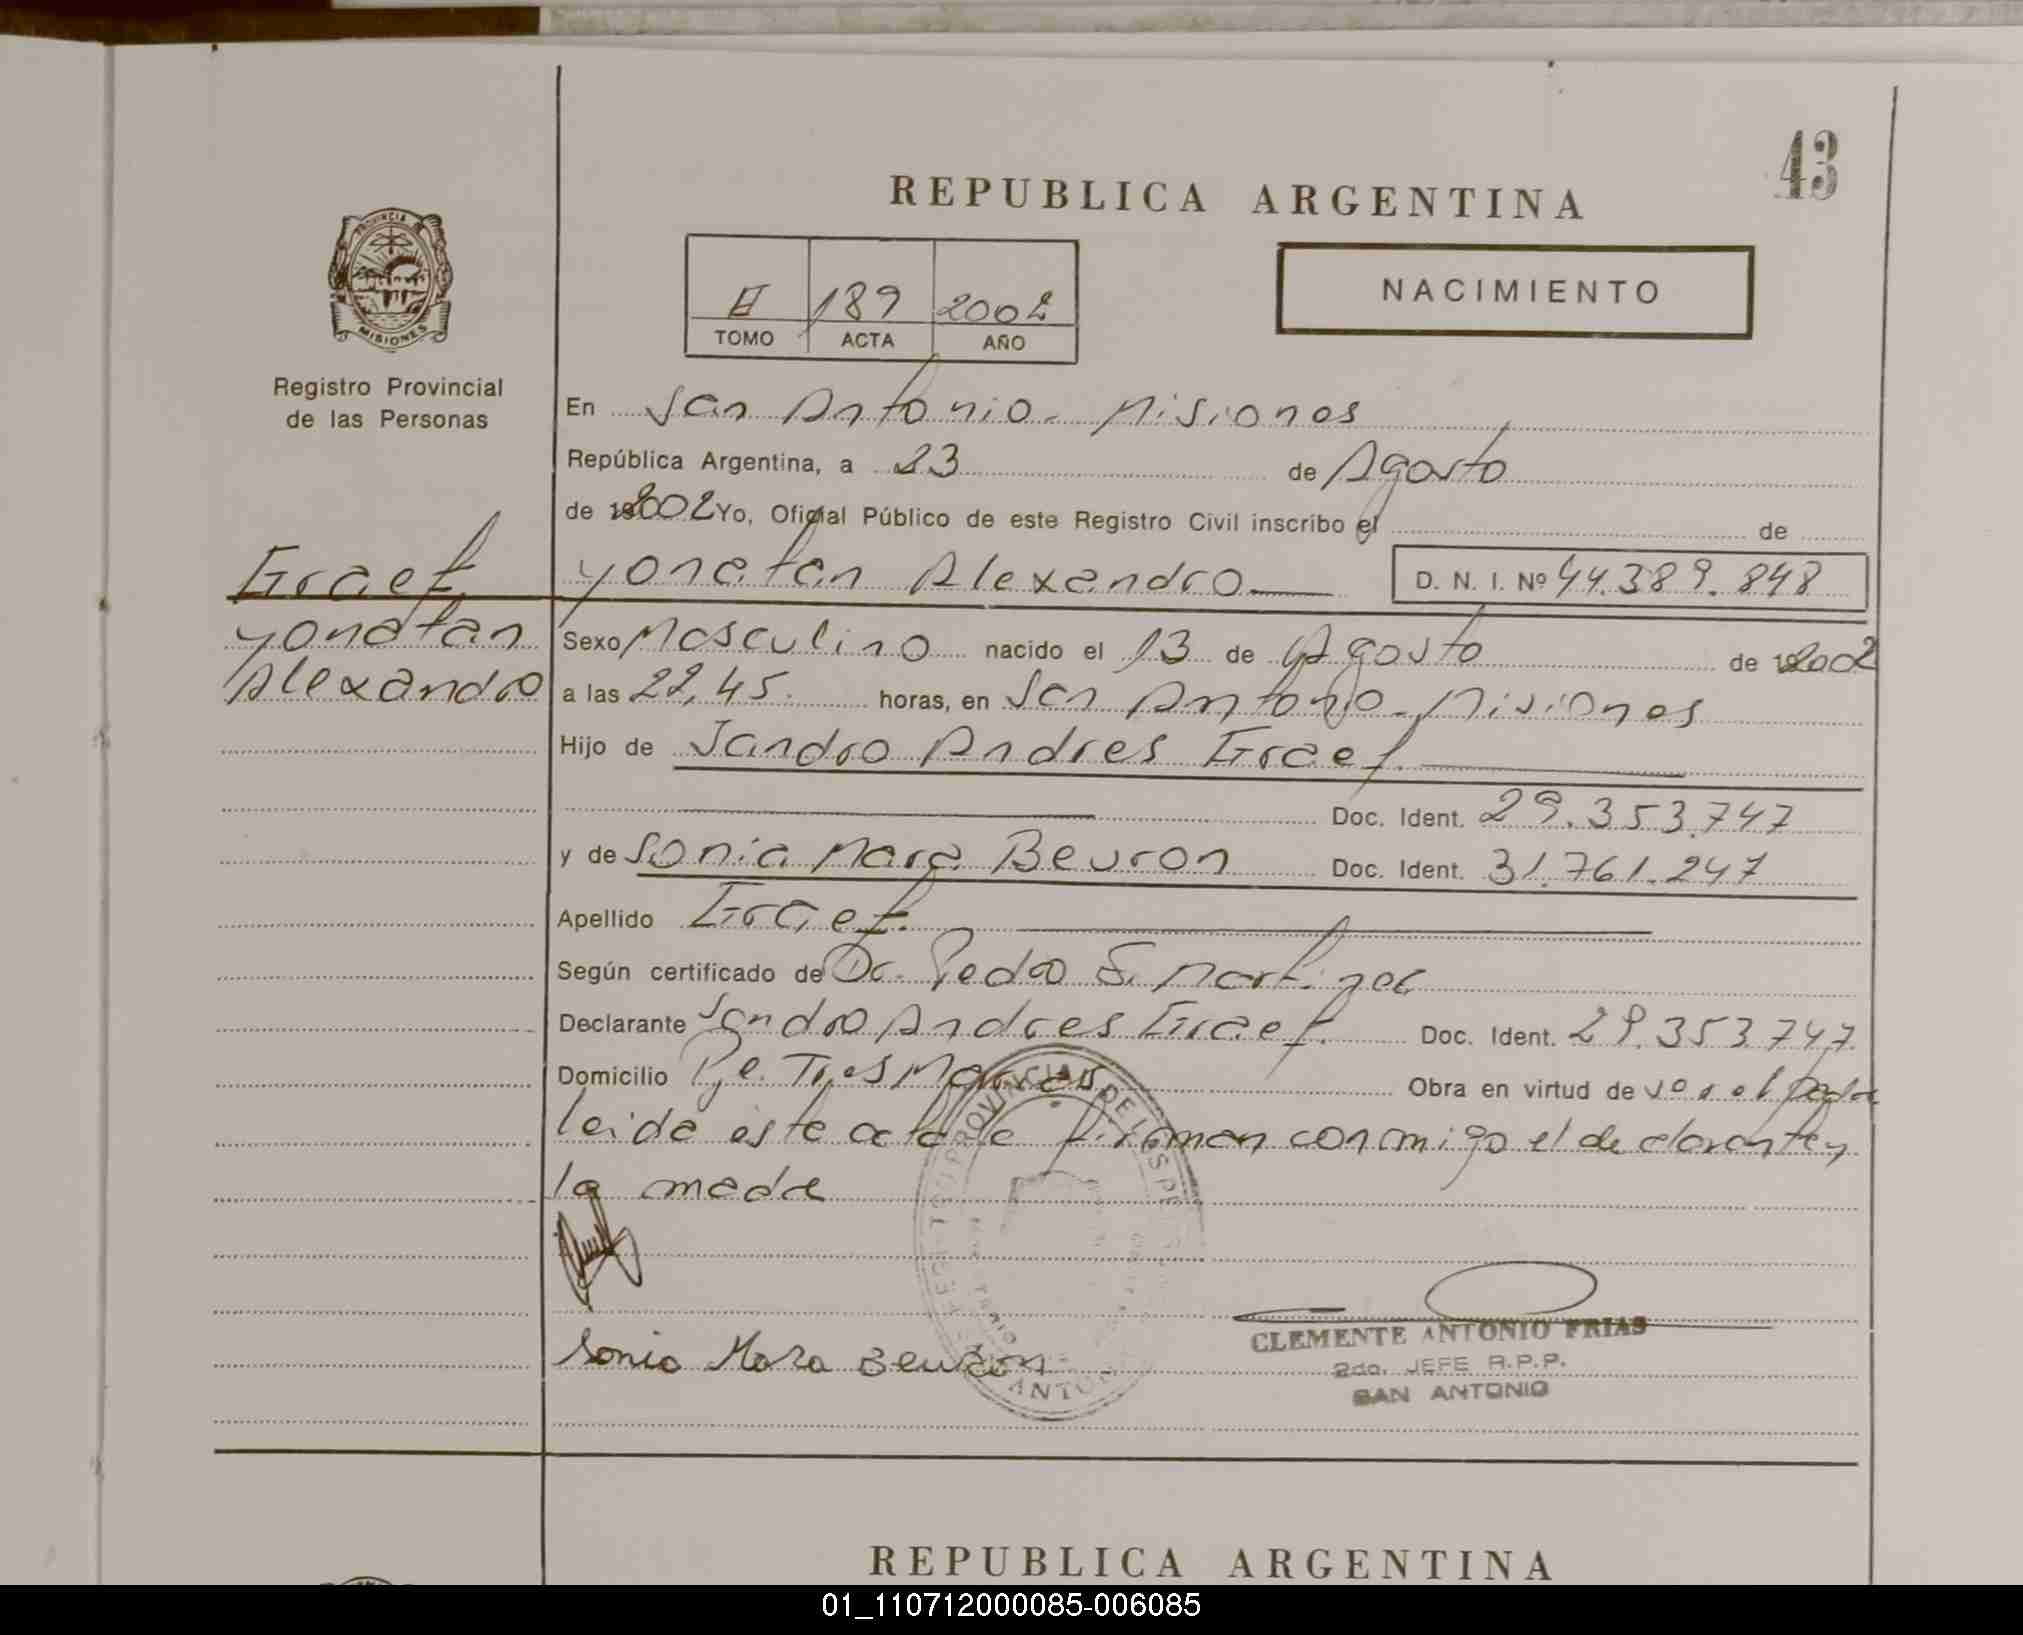 43
REPUBLICA ARGENTINA
PROVINCIA DE
MISIONES
II 189 2002
TOMO ACTA AÑO
NACIMIENTO
Registro Provincial
de las Personas
En San Antonio - Misiones
República Argentina, a 23 de Agosto
de 2002 Yo, Oficial Público de este Registro Civil inscribo el de
Graef
Yonatan Alexandro D. N. I. Nº 44.389.848
Yonatan
Alexandro
Sexo Masculino nacido el 13 de Agosto de 2002
a las 22,45. horas, en San Antonio - Misiones
Hijo de Sandro Andres Graef
Doc. Ident. 29.353.747
y de Sonia Mara Beuron Doc. Ident. 31.761.247
Apellido Graef.
Según certificado de Dr. Pedro Martinez
Declarante Sandro Andres Graef. Doc. Ident. 29.353.747.
Domicilio Pje. Tres Marias Obra en virtud de el padre
leida este acta le firman conmigo el declarante y
la madre
Sonia Mara Beuron
CLEMENTE ANTONIO FRIAS
2do. JEFE R.P.P.
SAN ANTONIO
REPUBLICA ARGENTINA
01_110712000085-006085